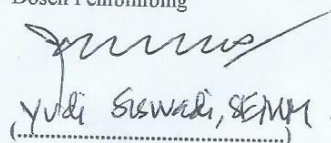 Dosen Pembimbing
Yudi Siswadi, SE,MM
(..............................)